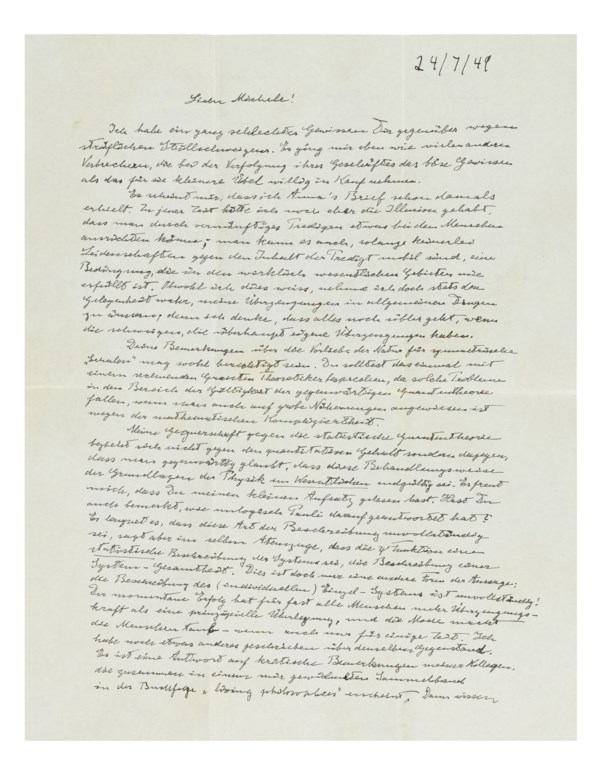 24/7/49
Lieber Michele!
Ich habe ein ganz schlechtes Gewissen Dir gegenüber wegen
sträflichen Stillschweigens. Es ging mir eben wie vielen anderen
Verbrechern, die bei der Verfolgung ihres Geschäftes das böse Gewissen
als das für sie kleinere Übel willig in Kauf nehmen.
Es scheint mir, dass ich Anna's Brief schon damals
erhielt. Zu jener Zeit hatte ich noch eher die Illusion gehabt,
dass man durch vernünftiges Predigen etwas bei den Menschen
ausrichten könne; man kann es auch, solange keinerlei
Leidenschaften gegen den Inhalt der Predigt mobil sind, eine
Bedingung, die in den wirklich wesentlichen Gebieten nie
erfüllt ist. Obwohl ich dies weiss, nehme ich doch stets die
Gelegenheit wahr, meine Überzeugungen in allgemeinen Dingen
zu äussern; denn ich denke, dass alles noch übler geht, wenn
die schweigen, die überhaupt eigene Überzeugungen haben.
Deine Bemerkungen über die Vorliebe der Natur für symmetrische
"Schalen" mag wohl berechtigt sein. Du solltest das einmal mit
einem rechnenden Quanten Theoretiker besprechen, da solche Probleme
in den Bereich der Gültigkeit der gegenwärtigen Quantentheorie
fallen, wenn man auch auf grobe Näherungen angewiesen ist
wegen der mathematischen Kompliziertheit.
Meine Gegnerschaft gegen die statistische Quantentheorie
bezieht sich nicht gegen den quantitativen Gehalt sondern dagegen,
dass man gegenwärtig glaubt, dass diese Behandlungsweise
der Grundlagen der Physik im Wesentlichen endgültig sei. Es freut
mich, dass Du meinen kleinen Aufsatz gelesen hast. Hast Du
auch bemerkt, wie unlogisch Pauli darauf geantwortet hat?
Er leugnet es, dass diese Art der Beschreibung unvollständig
sei, sagt aber im selben Atemzuge, dass die ψ Funktion eine
statistische Beschreibung des Systems sei, die Beschreibung einer
System-Gesamtheit. Dies ist doch nur eine andere Form der Aussage:
die Beschreibung des (individuellen) Einzel-Systems ist unvollständig!
Der momentane Erfolg hat für fast alle Menschen mehr Überzeugungs-
kraft als eine prinzipielle Überlegung, und die Mode macht
die Menschen taub - wenn auch nur für einige Zeit. Ich
habe noch etwas anderes geschrieben über denselben Gegenstand.
Es ist eine Antwort auf kritische Bemerkungen meiner Kollegen,
die zusammen in einem mir gewidmeten Sammelband
in der Buchfolge "living philosophers" erscheint. Dann wissen